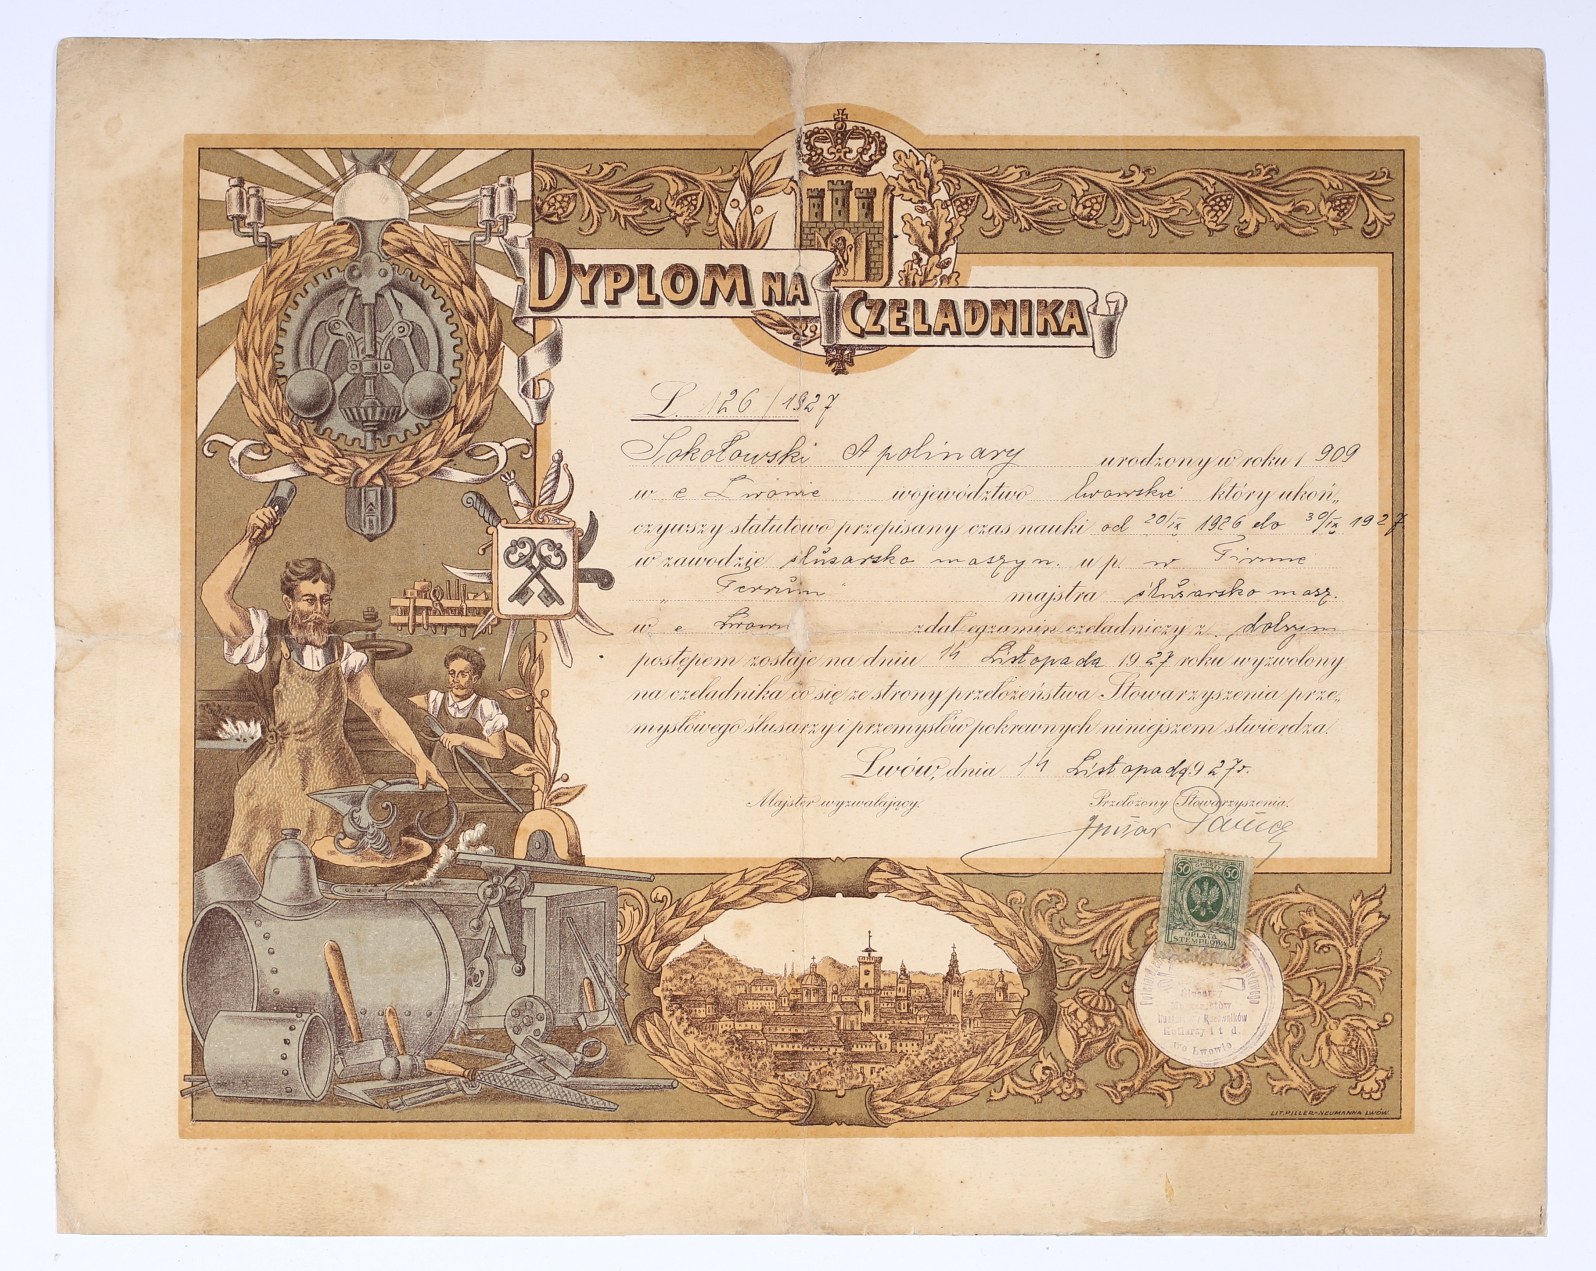 DYPLOM NA CZELADNIKA
L. 126/1927
Sokołowski Apolinary urodzony w roku 1909
w e Lwowie województwo lwowskie który ukoń„
czywszy statutowo przepisany czas nauki od 20/IX 1926 do 30/IX 1927
w zawodzie ślusarsko maszyn. u p. w Firmie
„ Ferrum majstra ślusarsko masz.
w e Lwowie zdał egzamin czeladniczy z dobrym
postępem zostaje na dniu 14 Listopada 1927 roku wyzwolony
na czeladnika co się ze strony przełożeństwa Stowarzyszenia prze„
mysłowego ślusarzy i przemysłów pokrewnych niniejszem stwierdza.
Lwów, dnia 14 Listopada 927r.
Majster wyzwalający. Przełożony Stowarzyszenia.
50 50
OPŁATA
STEMPLOWA
we Lwowie
LIT. PILLER-NEUMANNA LWÓW.